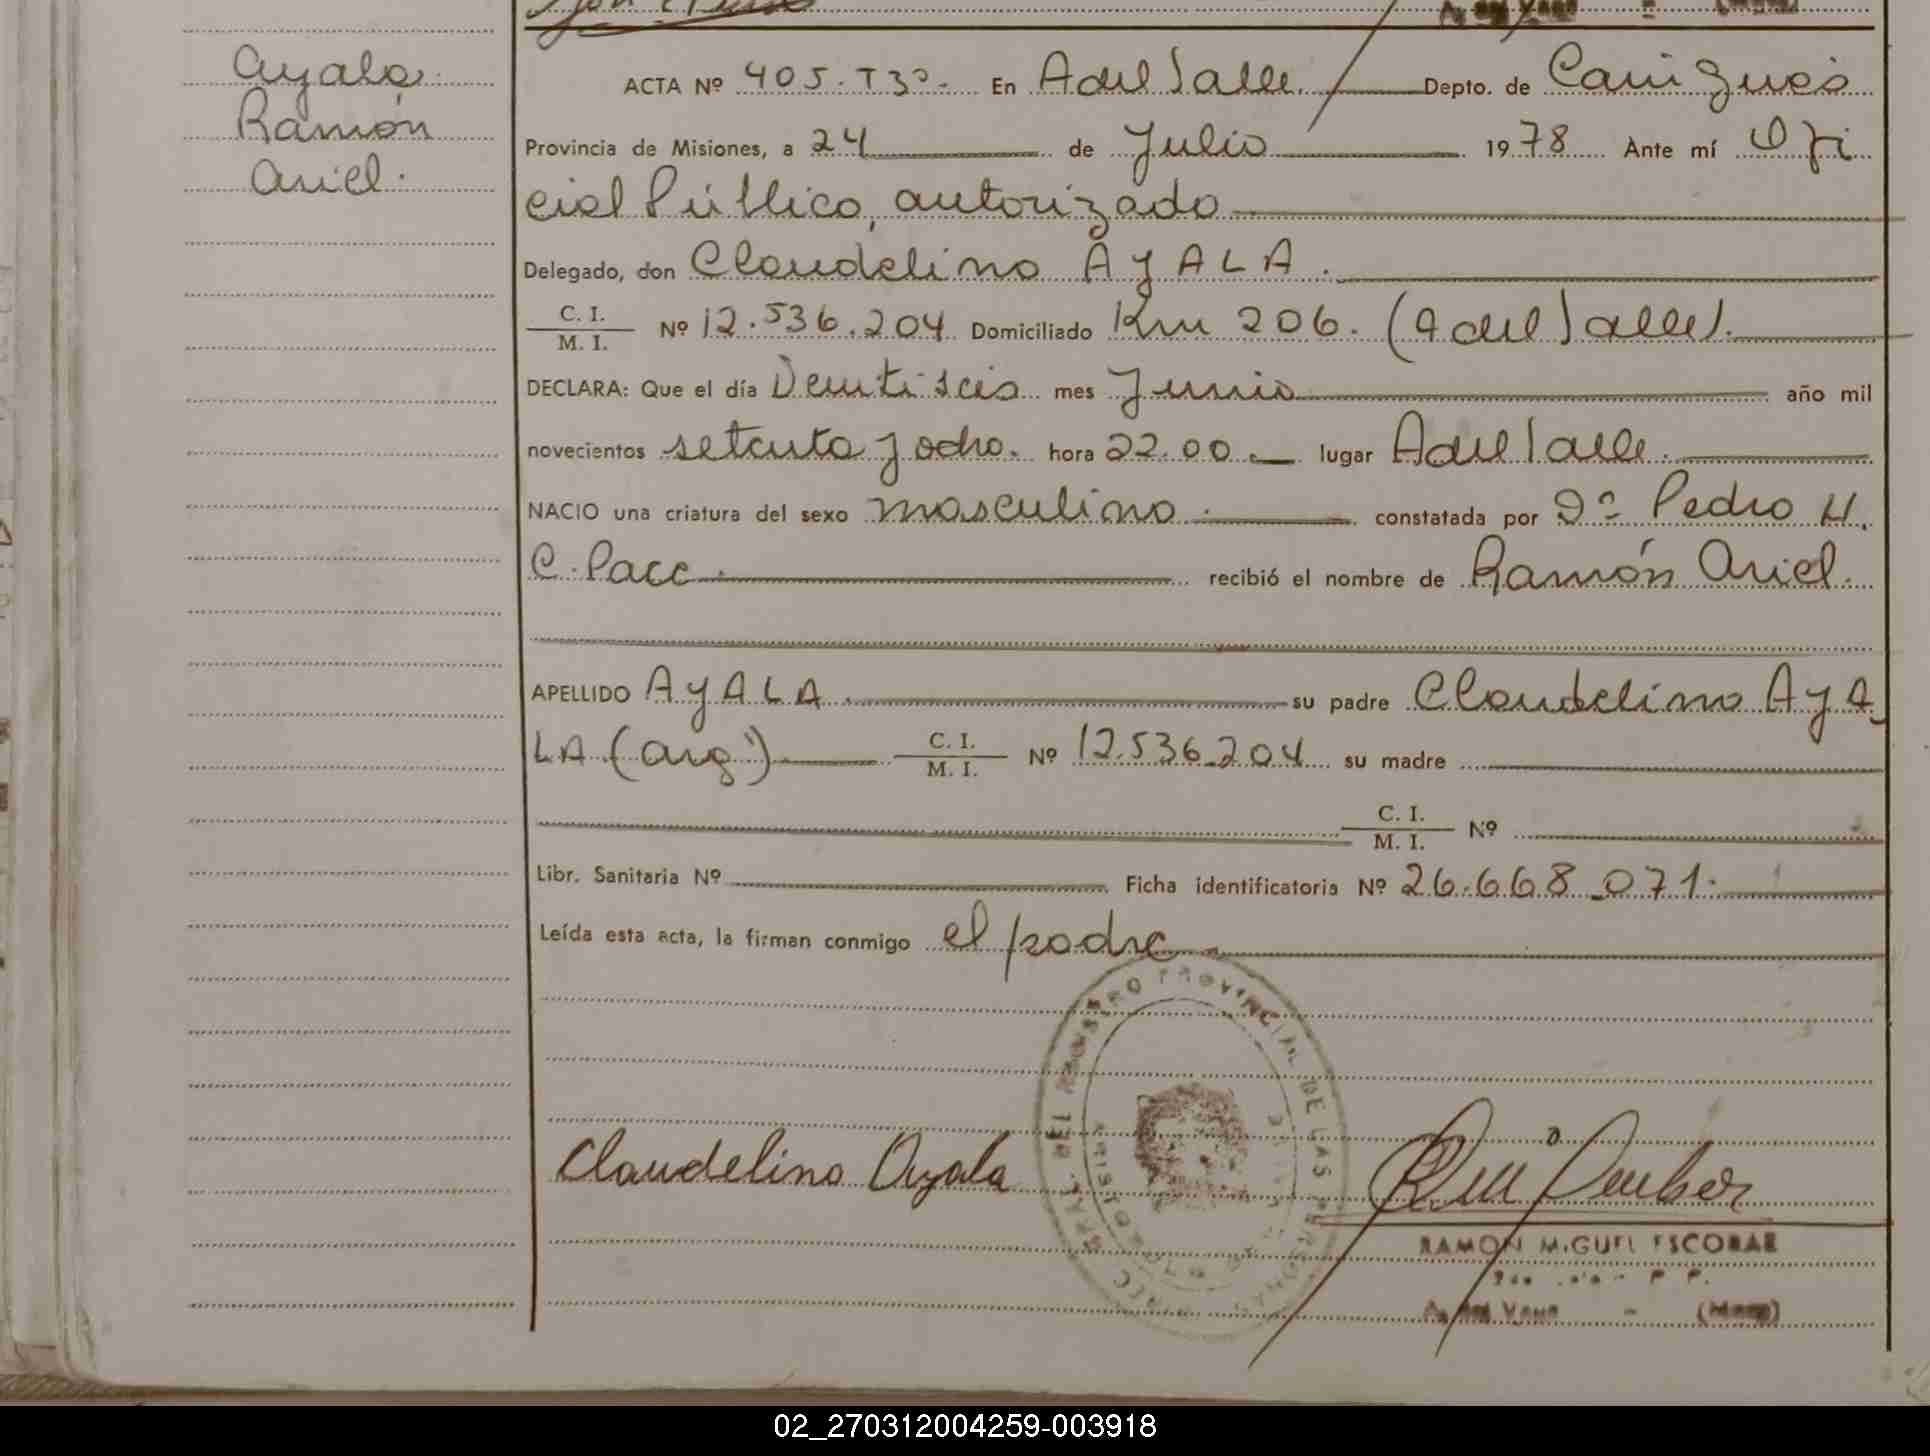 Ayala
Ramón
Ariel.
ACTA Nº 405.T3º. En A del Valle. Depto. de Cainguás
Provincia de Misiones, a 24 de Julio 1978 Ante mí Ofi
cial Público, autorizado
Delegado, don Claudelino AYALA.
C. I.
M. I. Nº 12.536.204 Domiciliado Km 206. (A del Valle).
DECLARA: Que el día Veintiseis mes Junio año mil
novecientos setenta y ocho. hora 22.00 lugar A del Valle.
NACIO una criatura del sexo masculino. constatada por Dº Pedro H.
C. Pacc. recibió el nombre de Ramón Ariel.
APELLIDO AYALA. su padre Claudelino AYA
LA (arg) C. I.
M. I. Nº 12.536.204 su madre
C. I.
M. I. Nº
Libr. Sanitaria Nº Ficha identificatoria Nº 26.668.071.
Leída esta acta, la firman conmigo el padre
Claudelino Ayala
REGISTRO PROVINCIAL DE LAS PERSONAS
RAMON MIGUEL ESCOBAR
02_270312004259-003918